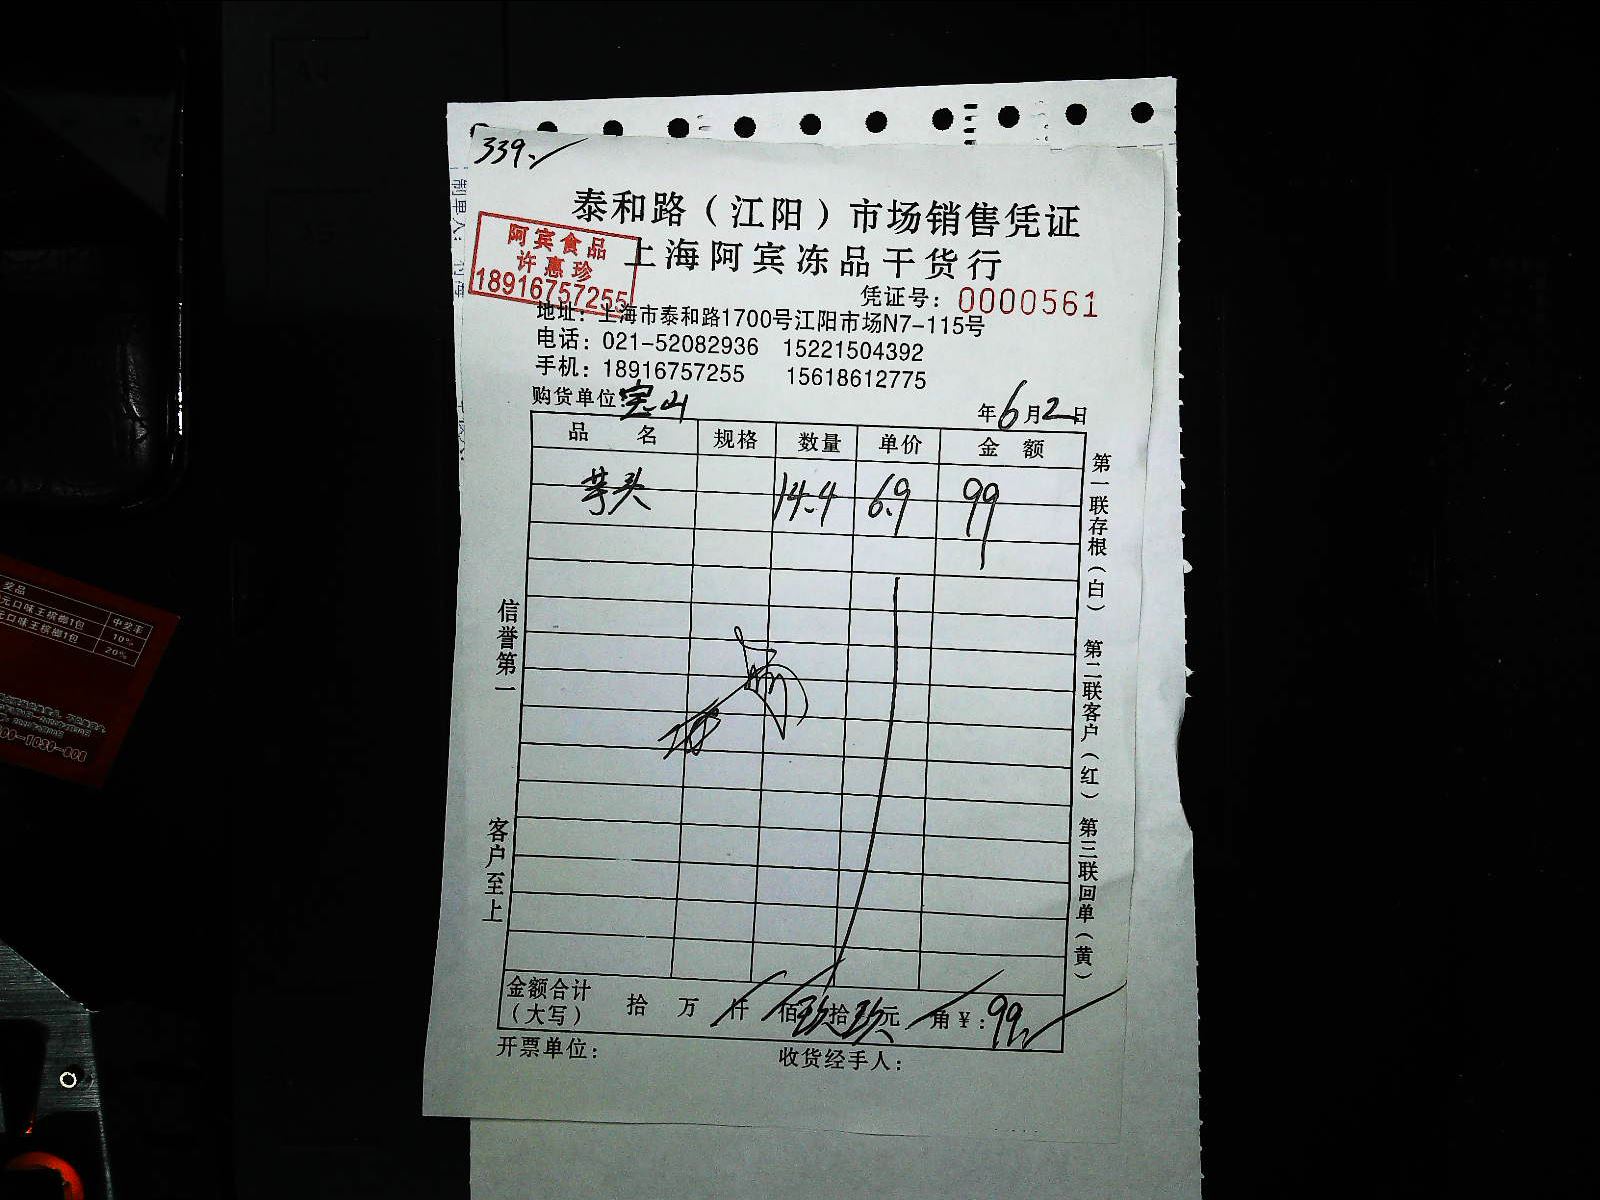 339.
泰和路（江阳）市场销售凭证
上海阿宾冻品干货行
阿宾食品
许惠珍
18916757255
凭证号：0000561
地址：上海市泰和路1700号江阳市场N7-115号
电话：021-52082936 15221504392
手机：18916757255 15618612775
购货单位 宝山 年6月2日
品 名 规格 数量 单价 金 额
芋头 14.4 6.9 99
金额合计（大写） 拾 万 仟 佰玖拾玖元 角 ¥：99.
开票单位： 收货经手人：
信誉第一
客户至上
第一联存根（白） 第二联客户（红） 第三联回单（黄）
制单人：
奖品 中奖率
元口味王槟榔1包 10%
元口味王槟榔1包 20%